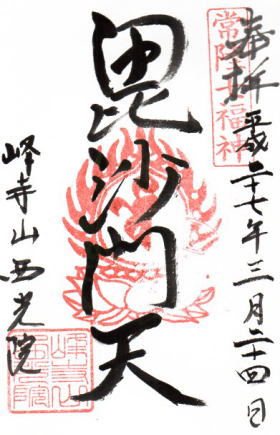 奉拝 平成二十七年三月二十四日
常陸七福神
毘沙門天
峰寺山西光院
峰寺山
西光院